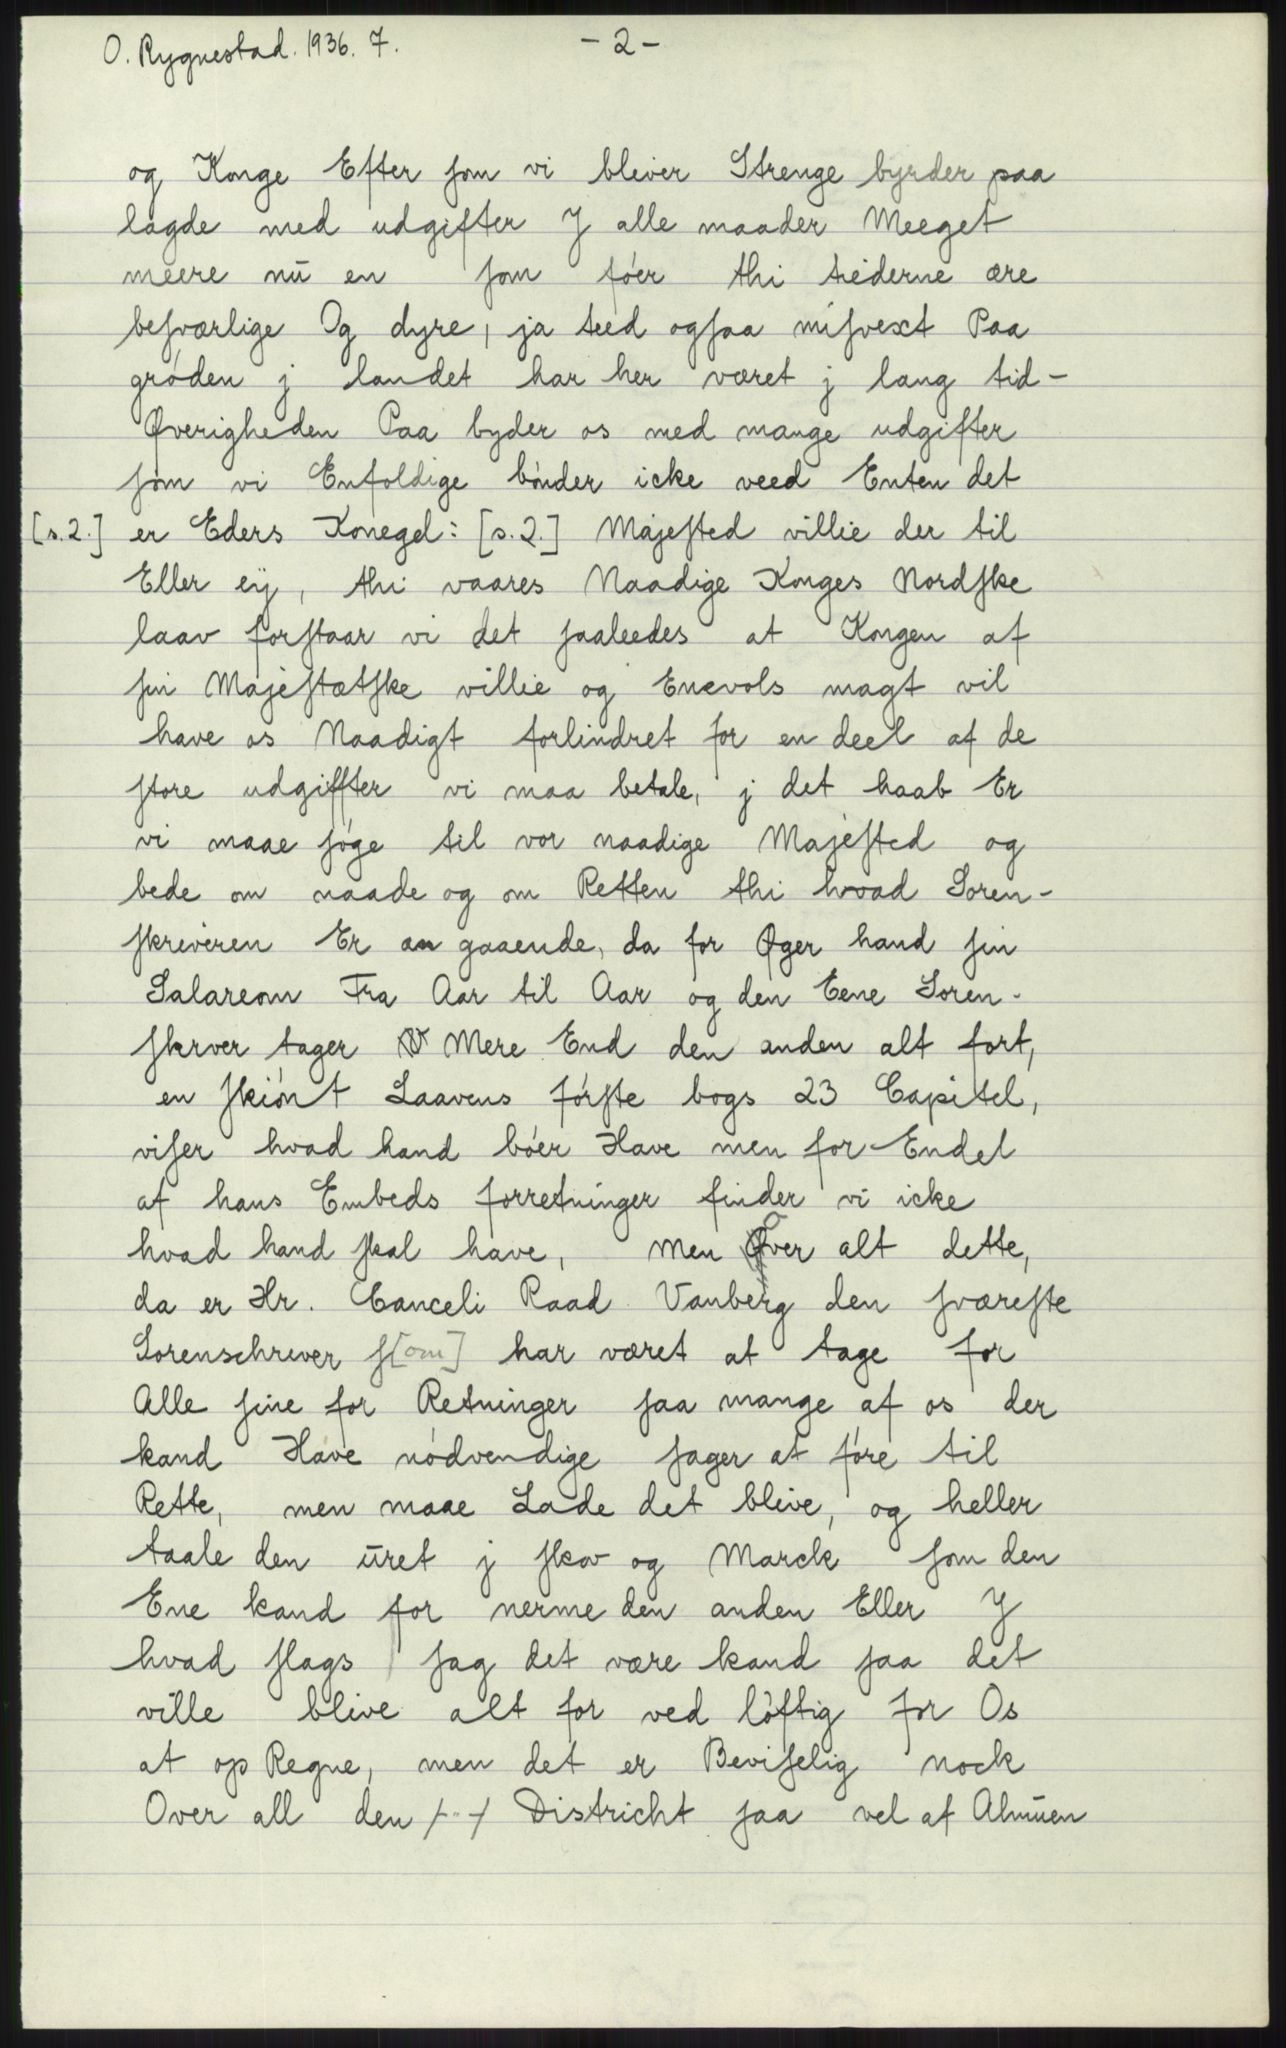 O. Rygnestad. 1936. 7. - 2 -
og Konge Efter ſom vi bliver Strenge byrder paa
lagde med udgifter J alle maader Meeget
meere nū en ſom fóer thi tiéderne ære
beſværlige Og dyre, ja teed ogſaa miſvext Paa
gróden j landet har her været j lang tid-
Øverigheden Paa byder os med mange udgifter
ſom vi Enfoldige bónder icke veed Enten det
[s.2.] er Eders Konegel: [s.2.] Majeſted villie der til
Eller eÿ, thi vaares Naadige Konges Nordſke
laav forſtaar vi det ſaaleedes at Kongen af
ſin Majeſtætſke villie og Enevols magt vil
have os Naadigt forlindret for en deel af de
ſtore udgiffter vi maa betale, j det haab Er
vi maae ſóge til vor naadige Majeſted og
bede om naade og om Retten thi hvad Soren-
ſkreveren Er an gaaende, da for Øger hand ſin
Salareom Fra Aar til Aar og den Eene Soren-
ſkrver tager Mere End den anden alt fort,
en ſkiónt Laavens fórſte bogs 23 Capitel,
viſer hvad hand bóer Have men for Endel
af hans Embeds forretninger finder vi icke
hvad hand ſkal have, Men Over alt dette,
da er Hr. Canceli Raad Vanberg den ſværeſte
Sorenschrever ſ[om] har været at tage for
Alle ſine for Retninger ſaa mange af os der
kand Have nódvendige ſager at fóre til
Rette, men maae Lade det blive, og heller
taale den ūret j ſkov og Marck ſom den
Ene kand for nerme den anden Eller J
hvad ſlags ſag det være kand ſaa det
ville blive alt for ved lóftig for Os
at op Regne, men det er Beviſelig nock
Over all den /-·-/ Districht ſaa vel af Almūen